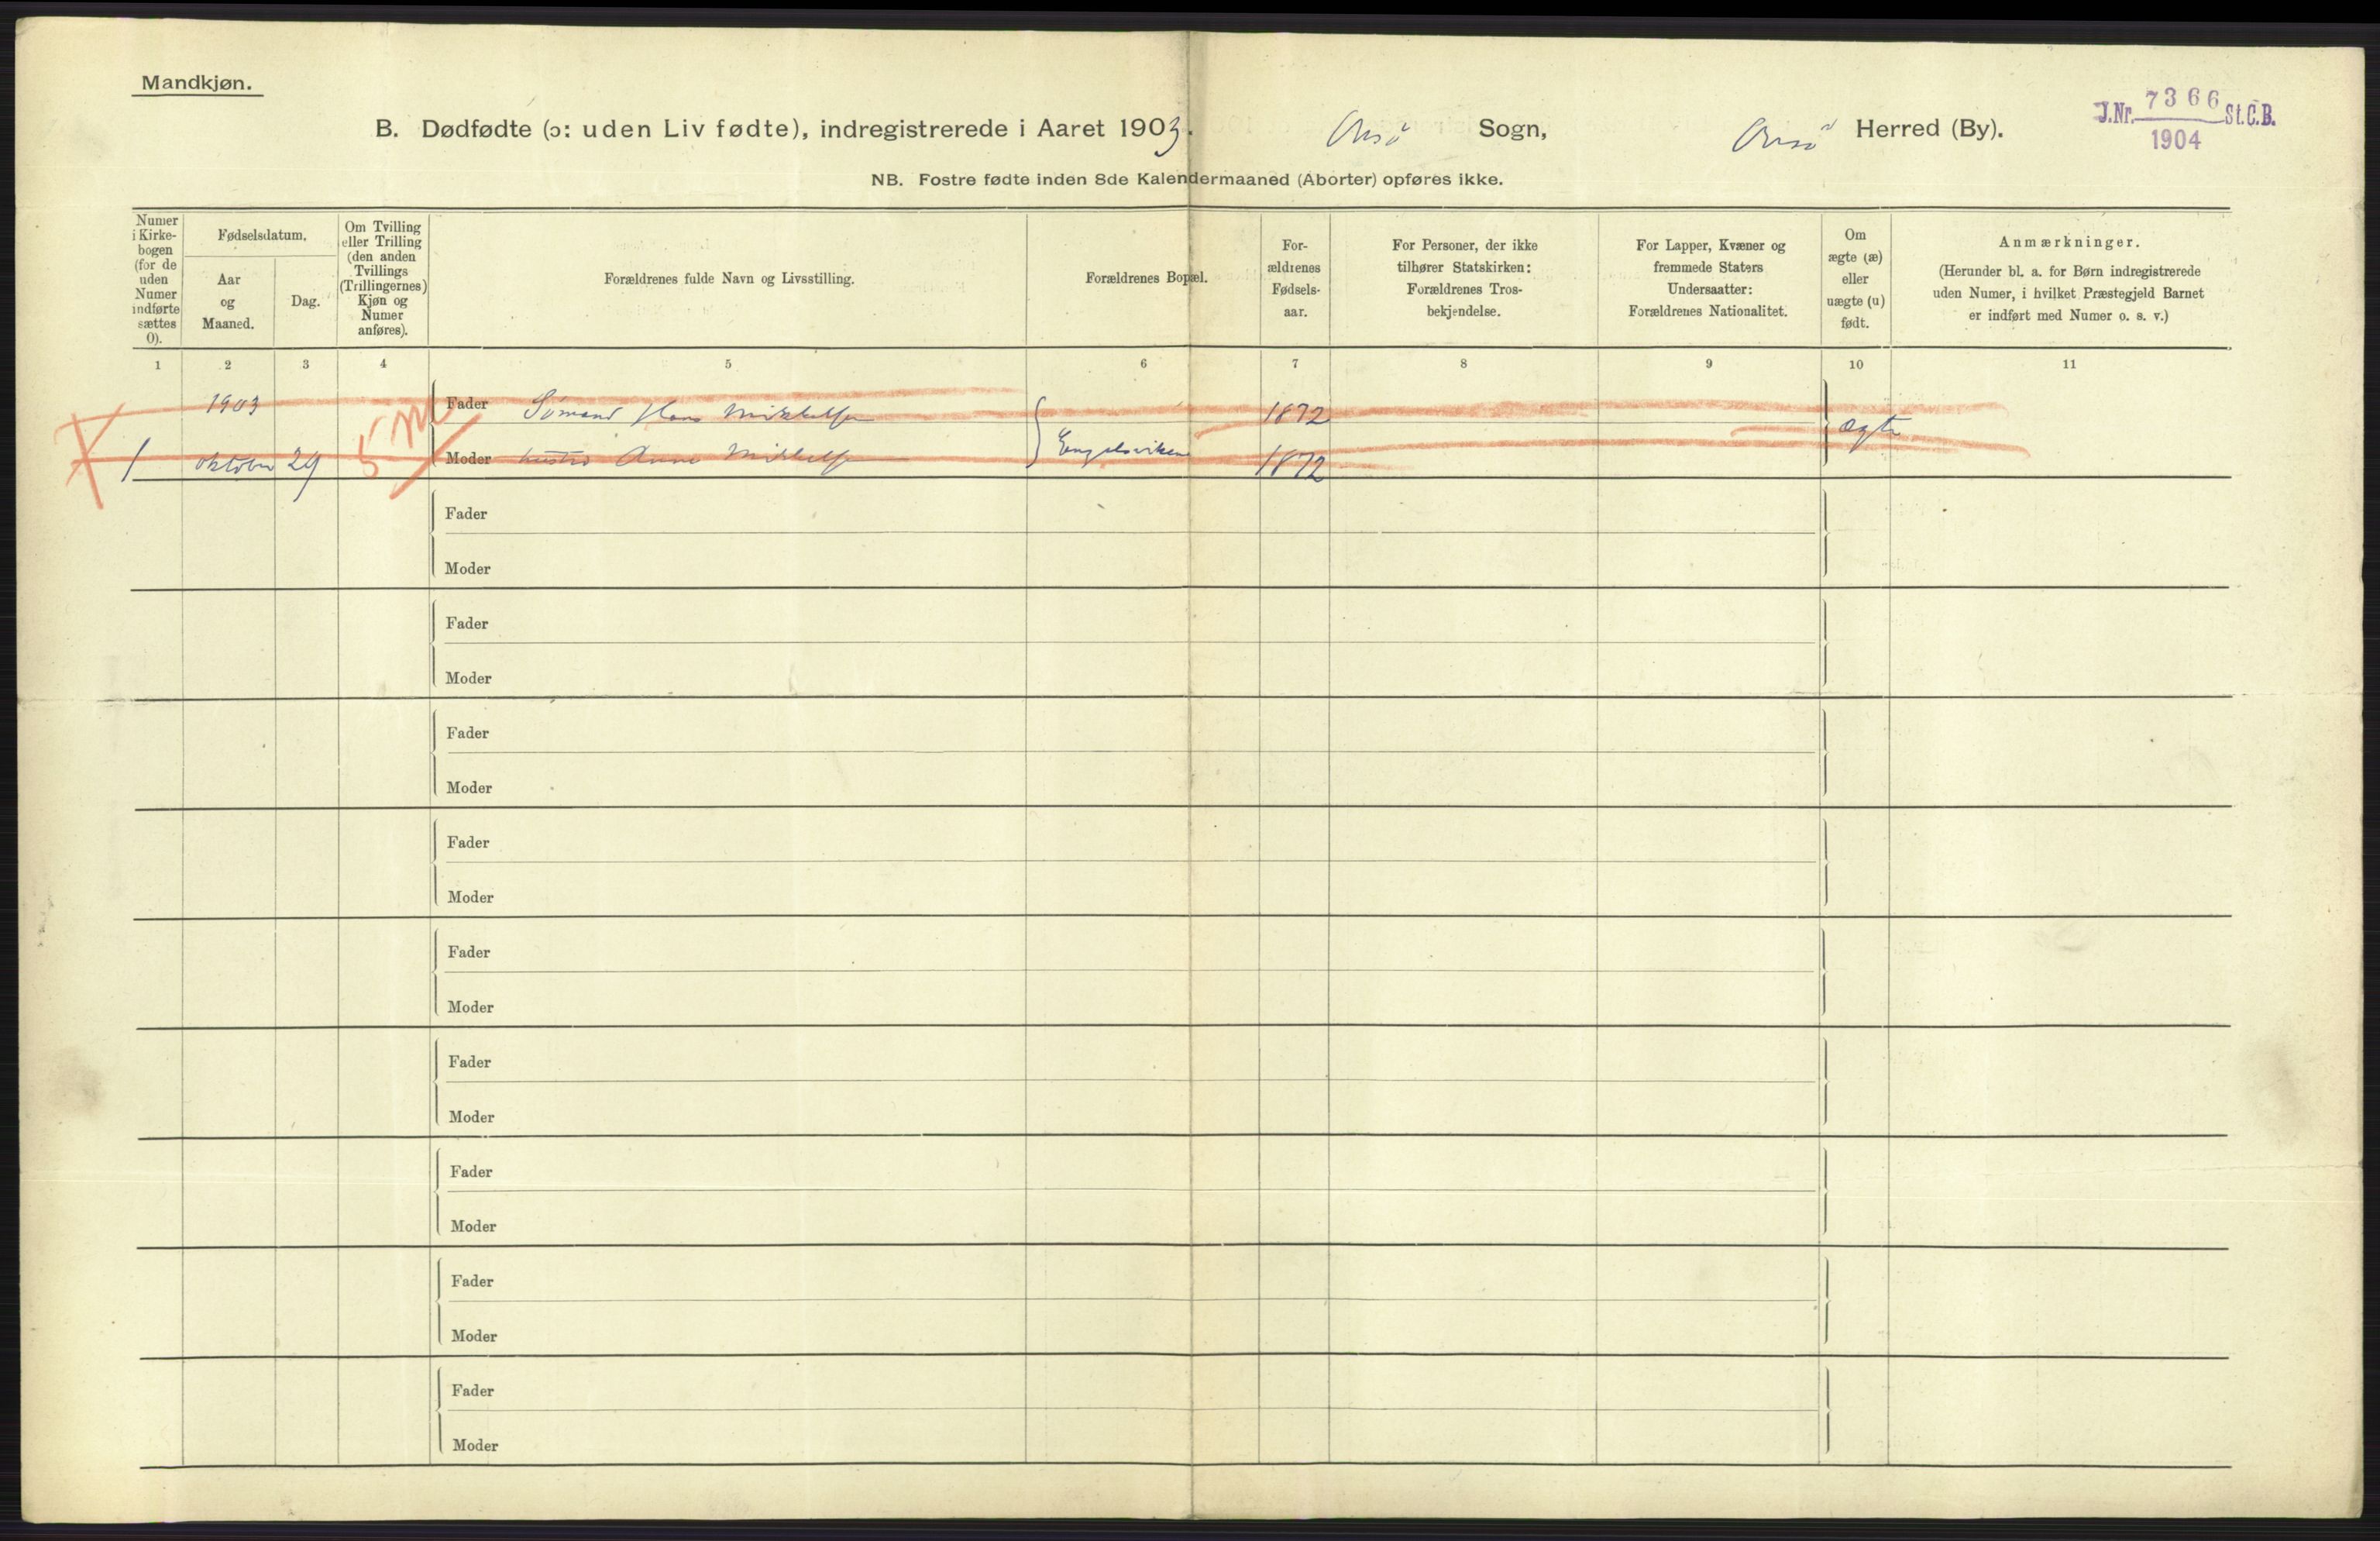 Mandkjøn.
B. Dødfødte (ɔ: uden Liv fødte), indregistrerede i Aaret 1903. Onsö Sogn, Onsö Herred (By).
J.Nr. 7366 St.C.B.
1904
NB. Fostre fødte inden 8de Kalendermaaned (Aborter) opføres ikke.
Numer
i Kirke-
bogen
(for de
uden
Numer
indførte
sættes
0).
Fødselsdatum.
Aar
og
Maaned.
Dag.
Om Tvilling
eller Trilling
(den anden
Tvillings
(Trillingernes)
Kjøn og
Numer
anføres).
Forældrenes fulde Navn og Livsstilling.
Forældrenes Bopæl.
For-
ældrenes
Fødsels-
aar.
For Personer, der ikke
tilhører Statskirken:
Forældrenes Tros-
bekjendelse.
For Lapper, Kvæner og
fremmede Staters
Undersaatter:
Forældrenes Nationalitet.
Om
ægte (æ)
eller
uægte (u)
født.
Anmærkninger.
(Herunder bl. a. for Børn indregistrerede
uden Numer, i hvilket Præstegjeld Barnet
er indført med Numer o. s. v.)
1 2 3 4 5 6 7 8 9 10 11
1903 5 m Fader Sömand Hans Mikkelsen 1872
1 oktober 29 Moder hustru Anna Mikkelsen Engelsviken 1872 ægte
Fader
Moder
Fader
Moder
Fader
Moder
Fader
Moder
Fader
Moder
Fader
Moder
Fader
Moder
Fader
Moder
Fader
Moder